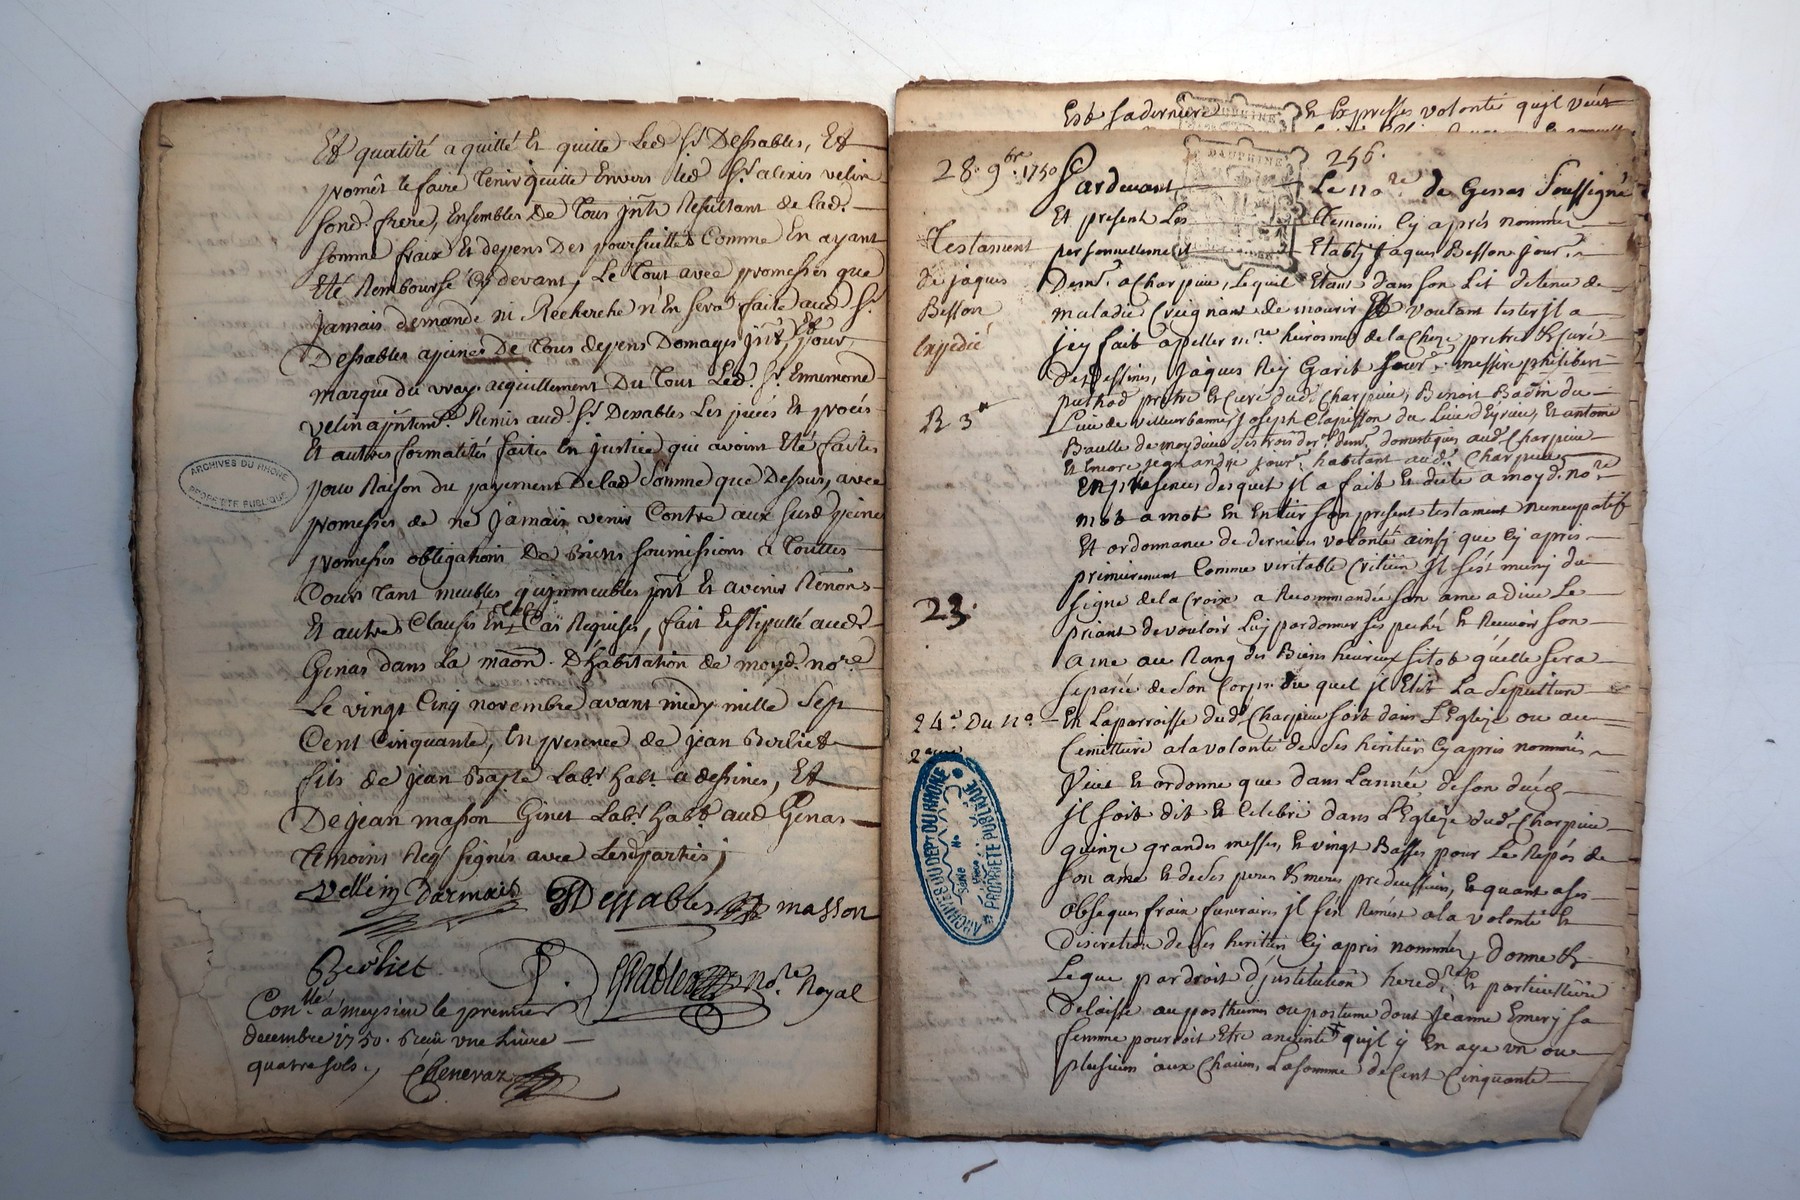 Et qualité a quitté Et quitte Led Sr Dessables, Et
promêt le faire Tenir quitte Envers Led Sr alexis velin
Sond. frere, Ensembles De Tous jnts Resultant de lad.
Somme fraix Et depens Des poursuittes Comme En ayant
Eté Remboursé Cy devant, Le Tout avec promesses que
Jamais demande ni Recherche n'En Sera faite aud Sr
Dessables apeines De Tous depens Domages jnts Et pour
marque du vray aquittement Du Tout Led. Sr Ennemond
velin a Remis aud. Sr Dessables Les pieces Et procés
Et autres formalités faites En justice qui avoint Eté faites
pour Raison du payement De lad Somme que Dessus, avec
promesses de ne Jamais venir Contre aux Susd peine
promesses obligations De Biens Soumissions a Touttes
Cours Tant meubles qu'jmmeubles pnt Et avenir Renons
Et autres Clauses En tel Cas Requises, fait Et Stipullé aud
Genas dans La maôn. D'habitation de moyd. nore
Le vingt Cinq novembre avant midy mille Sept
Cent Cinquante, En presence de jean Berliet
fils de jean Bapte Labr habt a dessines, Et
De jean masson Ginet Labr habt aud Genas
Temoins Reqs Signés avec Lesd parties;
Vellein Darmais Dessables masson
Berliet nore Royal
Conlle a meysieu le premier
decembre 1750. Receu une Livre
quatre sols., Chenevaz
ARCHIVES DU RHONE
PROPRIETE PUBLIQUE
Est Sa derniere Et Expresse volonté qujl veut
28. 9bre. 1750
256.
DAUPHINE
Pardevant Le nore de Genas Soussigné
Et present Les Temoins Cy aprés nommés
personnellement Etably Jaques Besson jourr.
Demt. a Charpieu, Lequel Etant dans Son Lit detenu de
maladie Creignant de mourir Et voulant tester jl a
jcy fait apeller mre heirosme de la Choze pretre Et Curé
de Dessines, Jaques Rey Garit jourr. messire philibert
puthod pretre Et Curé dud. Charpieu, Benoit Badin du
Lieu de villeurbanne, Joseph Clapisson du Lieu d'Eyrieu, Et antoine
Baulle de moydieu Les trois derrs. demt. domestiques aud. Charpieu
Et Encore jean andré jourr. habitant aud. Charpieu
En presences desquels jl a fait Et dicté a moyd. nore.
mot a mot En Entier Son present testament nuncupatif
Et ordonnance de derniere volonté ainsi que Cy aprés
premierement Comme veritable Crétien jl S'est muny du
Signe de la Croix a Recommandé Son ame a dieu Le
priant de vouloir Luy pardonner Ses pechés Et Recevoir Son
ame au Rang des Bienheureux Sitot qu'elle Sera
Separée de Son Corps du quel jl Elit La Sepulture
En La parroisse dud. Charpieu Soit dans L'Eglize ou au
Cemittiere a la volonté de Ses heritiers Cy aprés nommés
Veut Et ordonne que dans L'année de Son decés
jl Soit dit Et Celebré dans L'Eglize dud. Charpieu
quinze grandes messes, Et vingt Basses pour Le Repos de
Son ame Et de Ses peres Et meres predecesseurs, Et quant a Ses
obseques fraix funeraires jl S'en Remest a la volonté Et
Discretion de Ses heritiers Cy aprés nommés, donne Et
Legue par droit d'jnstitution heredre. Et particulliere
Delaisse au posthume ou postume dont Jeanne Emery Sa
femme pourroit Etre anceinte qujl y En aye un ou
plusieurs a un Chacun, La Somme de Cent Cinquante
Testament
de jaques
Besson
Expedié
R 3
23.
24e. Du no.
ARCHIVES DU DEPT DU RHONE
PROPRIETE PUBLIQUE
Série
No